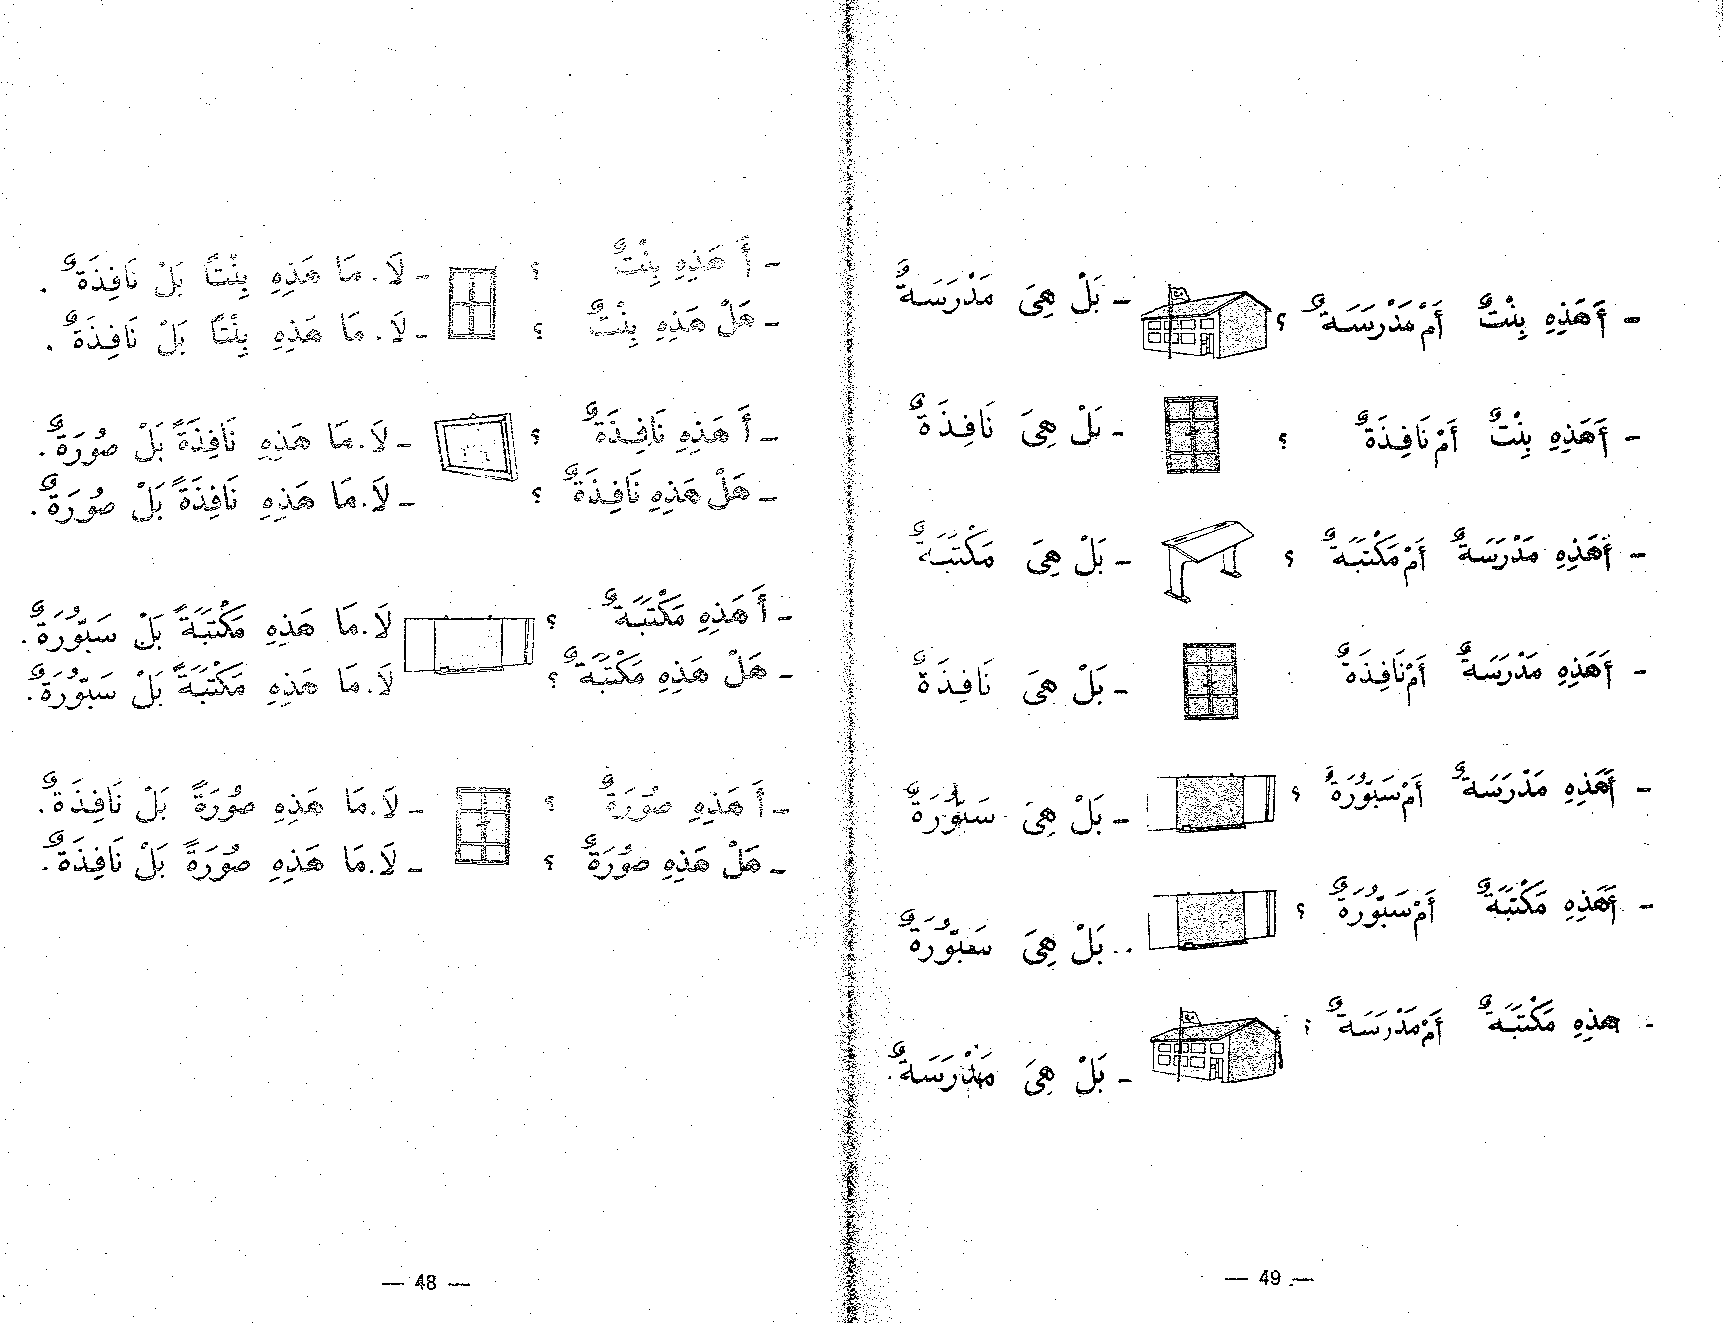 - أَ هَذِهِ بِنْتٌ ؟ - لَا. مَا هَذِهِ بِنْتًا بَلْ نَافِذَةٌ .
- هَلْ هَذِهِ بِنْتٌ ؟ - لَا. مَا هَذِهِ بِنْتًا بَلْ نَافِذَةٌ .
- أَ هَذِهِ نَافِذَةٌ ؟ - لَا. مَا هَذِهِ نَافِذَةً بَلْ صُورَةٌ.
- هَلْ هَذِهِ نَافِذَةٌ ؟ - لَا. مَا هَذِهِ نَافِذَةً بَلْ صُورَةٌ.
- أَ هَذِهِ مَكْتَبَةٌ ؟ لَا. مَا هَذِهِ مَكْتَبَةً بَلْ سَبّوُرَةٌ.
- هَلْ هَذِهِ مَكْتَبَةٌ ؟ لَا. مَا هَذِهِ مَكْتَبَةً بَلْ سَبّوُرَةٌ.
- أَ هَذِهِ صُورَةٌ ؟ - لَا. مَا هَذِهِ صُورَةً بَلْ نَافِذَةٌ.
- هَلْ هَذِهِ صُورَةٌ ؟ - لَا. مَا هَذِهِ صُورَةً بَلْ نَافِذَةٌ.
— 48 —
- أَهَذِهِ بِنْتٌ أَمْ مَدْرَسَةٌ ؟ - بَلْ هِىَ مَدْرَسَةٌ
- أَهَذِهِ بِنْتٌ أَمْ نَافِذَةٌ ؟ - بَلْ هِىَ نَافِذَةٌ
- أَهَذِهِ مَدْرَسَةٌ أَمْ مَكْتَبَةٌ ؟ - بَلْ هِىَ مَكْتَبَةٌ
- أَهَذِهِ مَدْرَسَةٌ أَمْ نَافِذَةٌ - بَلْ هِىَ نَافِذَةٌ
- أَهَذِهِ مَدْرَسَةٌ أَمْ سَبّوُرَةٌ ؟ - بَلْ هِىَ سَبّوُرَةٌ
- أَهَذِهِ مَكْتَبَةٌ أَمْ سَبّوُرَةٌ ؟ - بَلْ هِىَ سَبّوُرَةٌ
- هذِهِ مَكْتَبَةٌ أَمْ مَدْرَسَةٌ ؟ - بَلْ هِىَ مَدْرَسَةٌ.
— 49 —